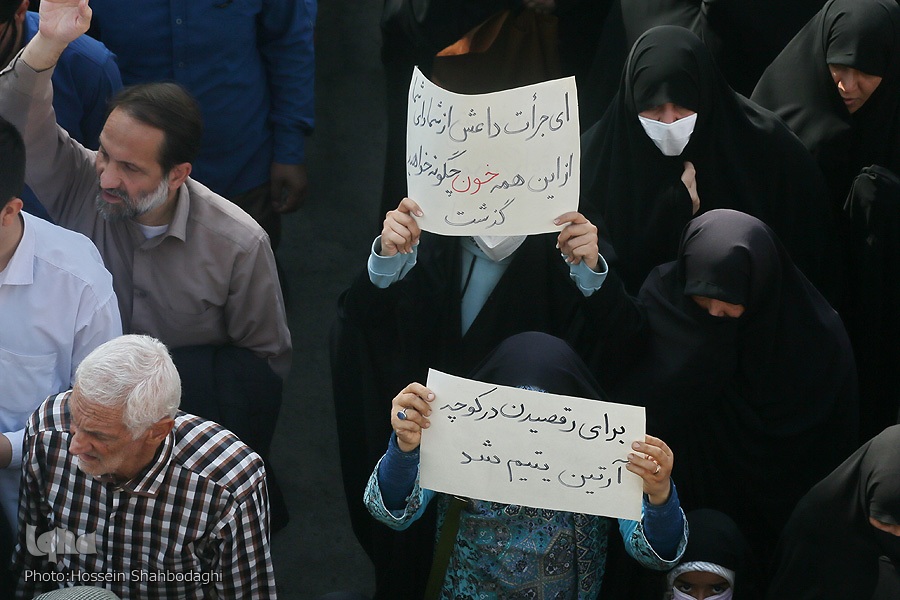 ای جرأت داعش از شما رأی شما
از این همه خون چگونه خواهد
گذشت
برای رقصیدن در کوچه
آرتین یتیم شد
iqna
Photo:Hossein Shahbodaghi